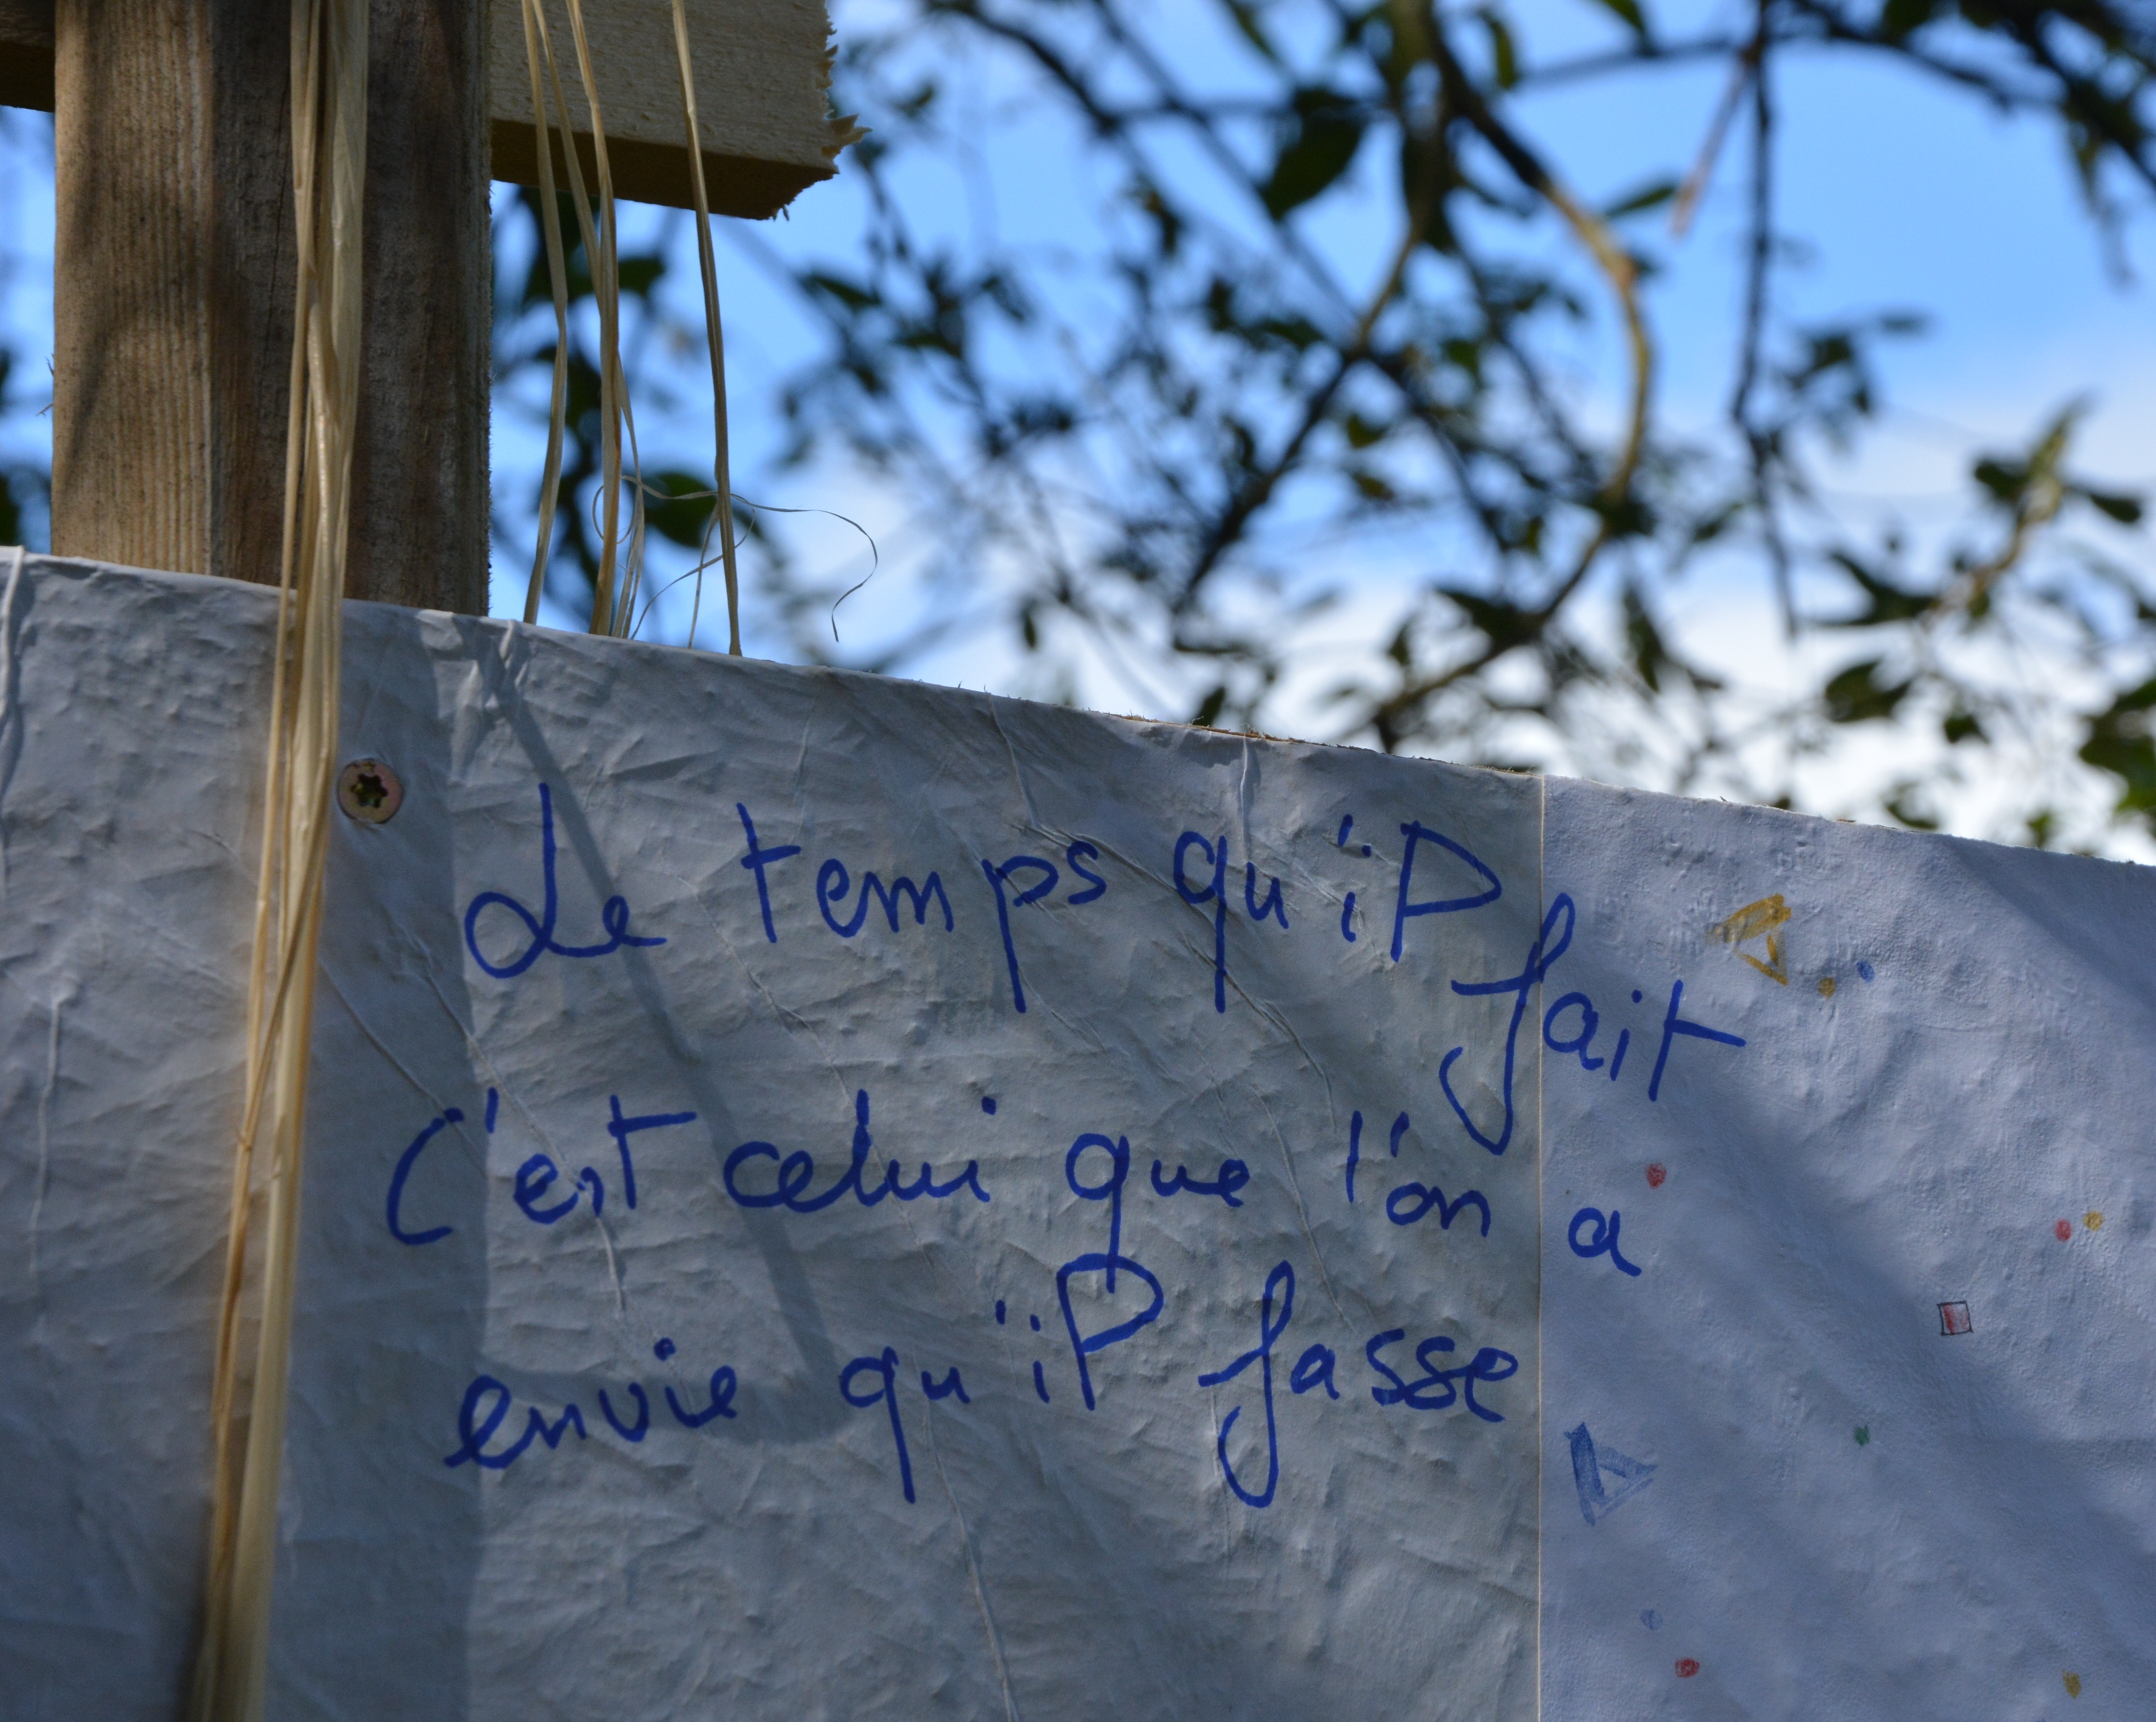 Le temps qu'il fait
c'est celui que l'on a
envie qu'il fasse